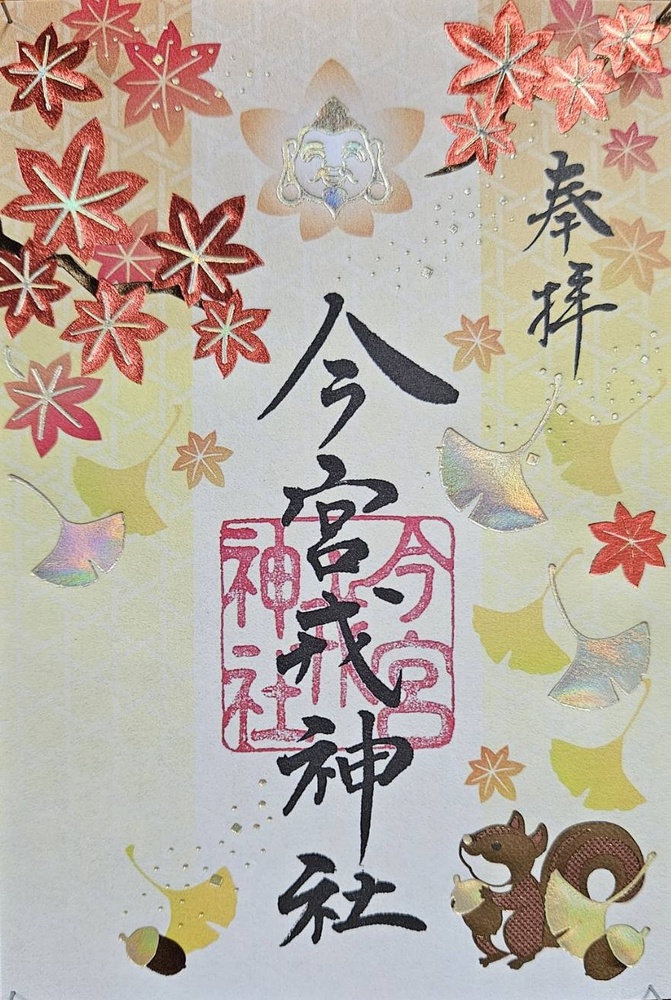 奉拝
今宮戎神社
今宮戎神社